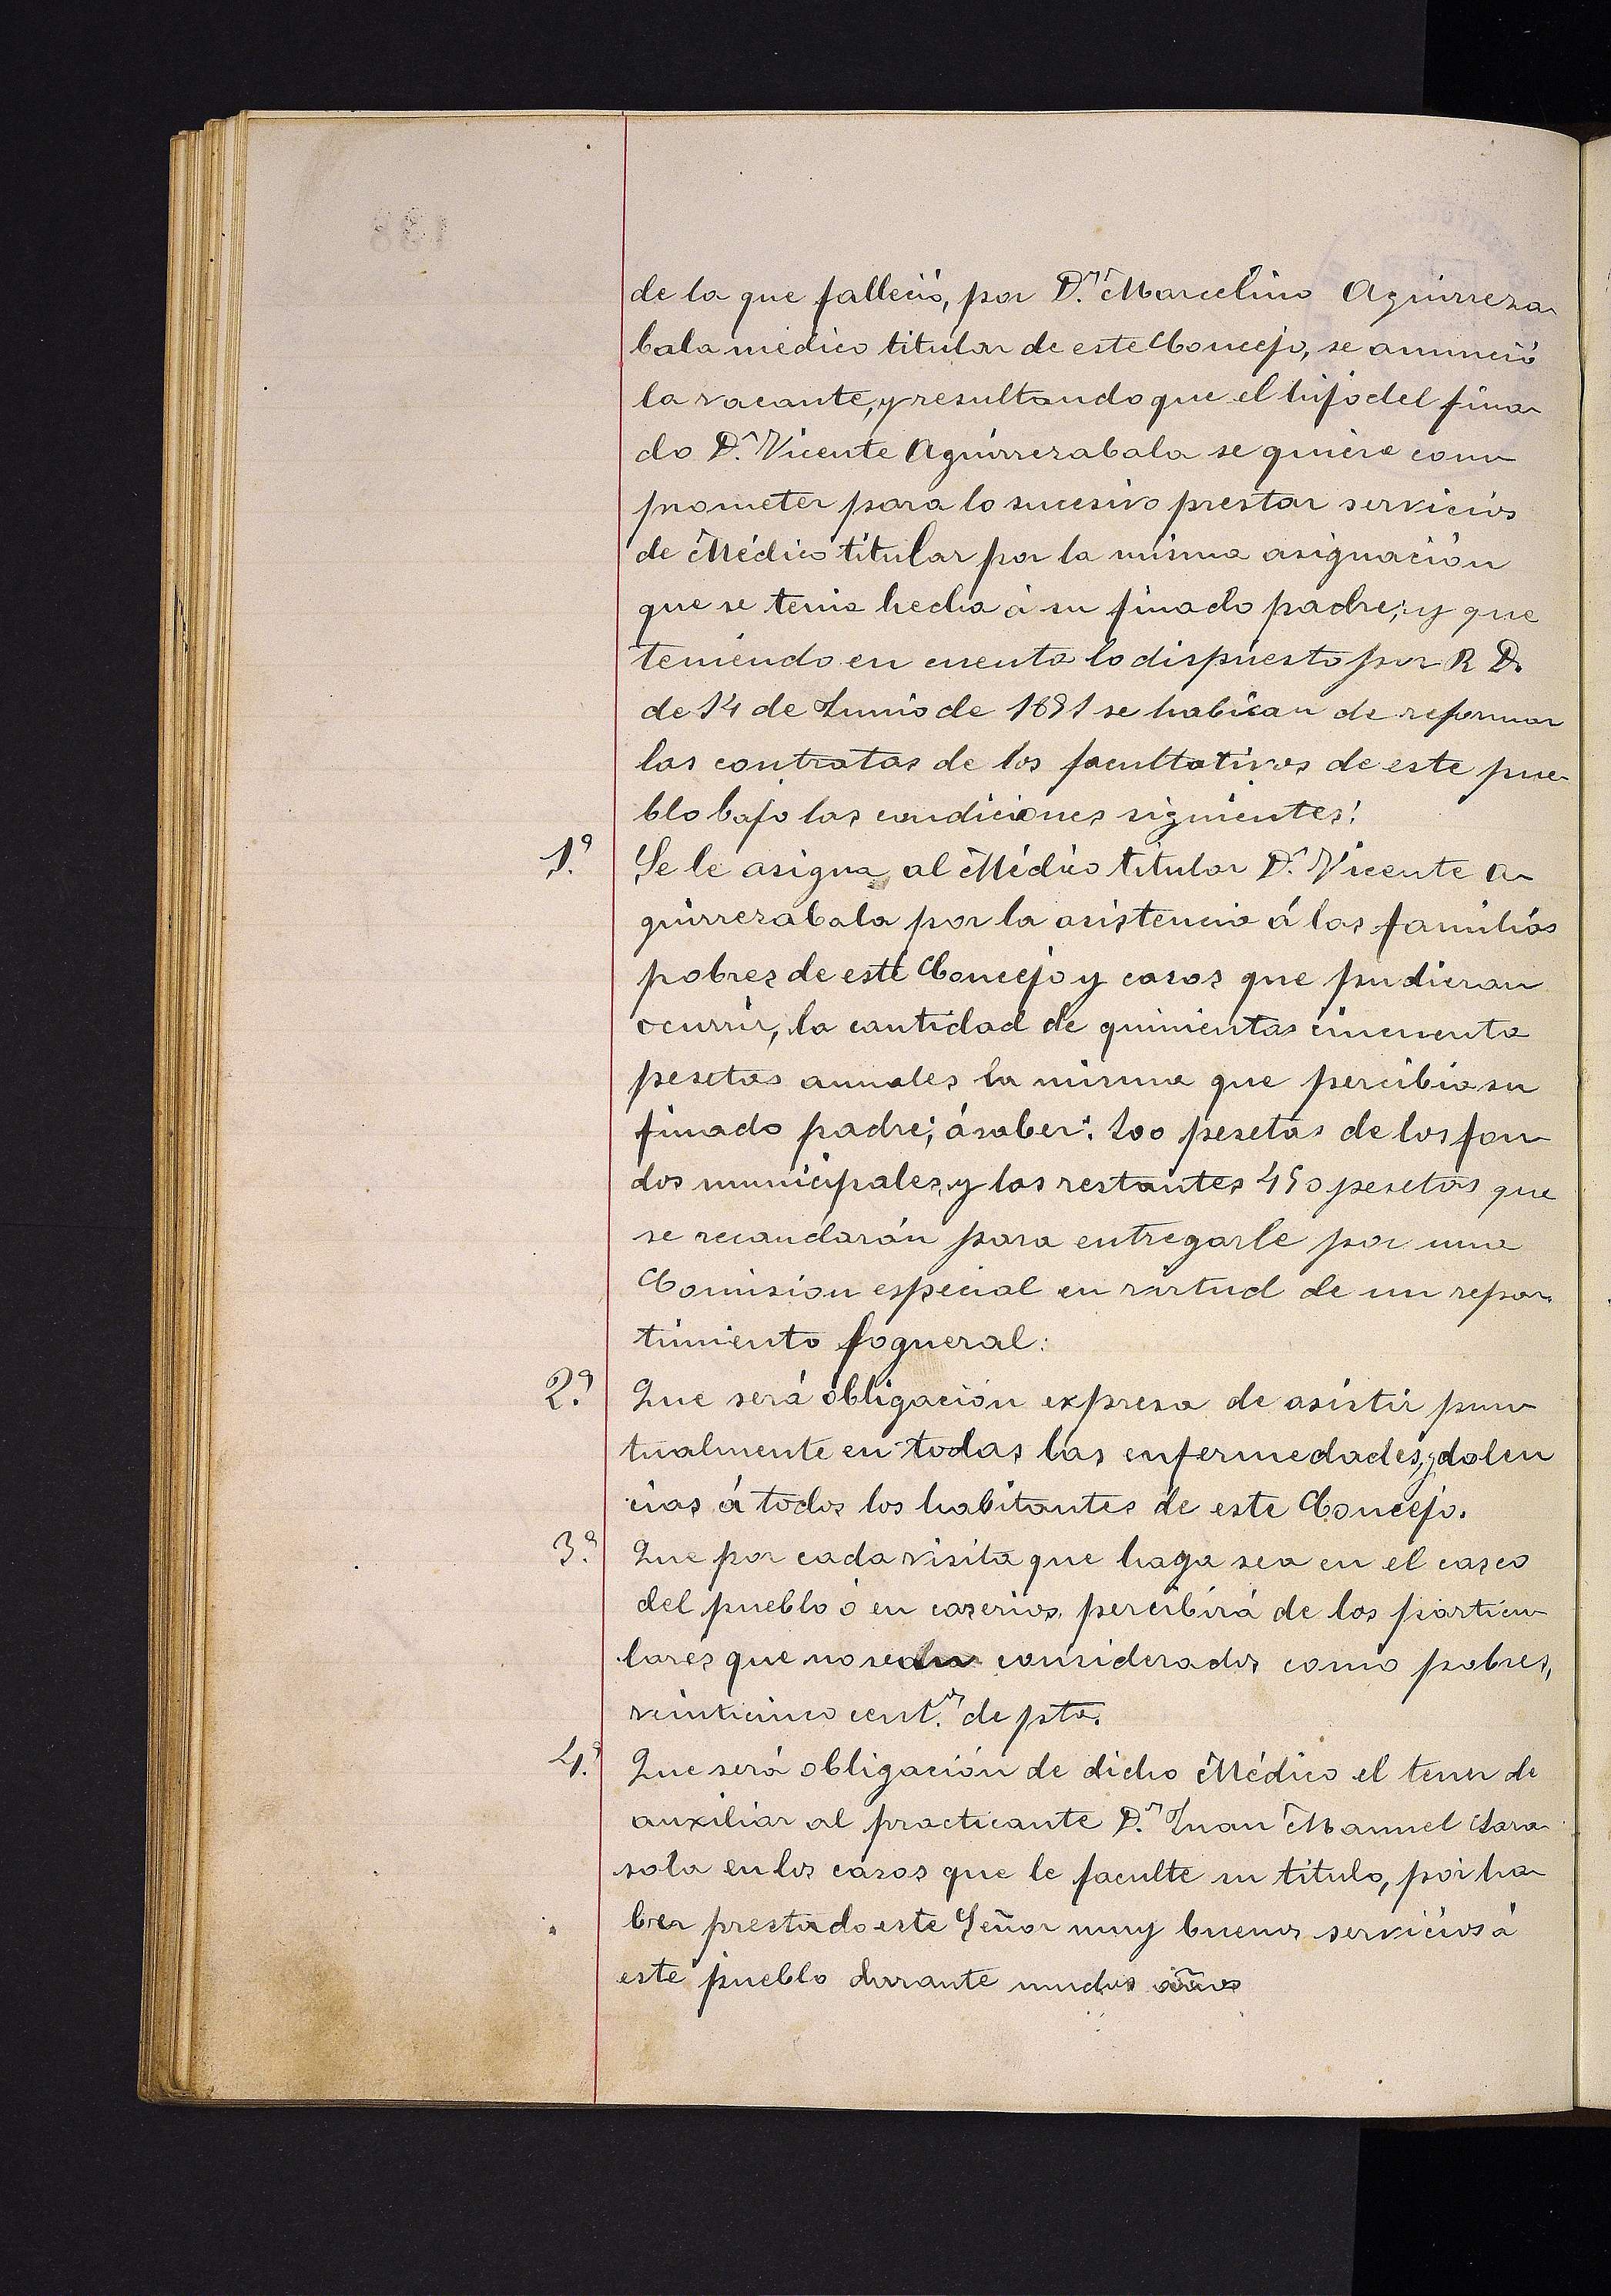 de la que falleció, por D.ⁿ Marcelino Aguirreza-
bala médico titular de este Concejo, se anunció
la vacante, y resultando que el hijo del fina-
do D.ⁿ Vicente Aguirrezabala se quiere com-
prometer para lo sucesivo prestar servicios
de Médico titular por la misma asignación
que se tenia hecha á su finado padre; y que
teniendo en cuenta lo dispuesto por R D.
de 14 de Junio de 1891 se habian de reformar
las contratas de los facultativos de este pue-
blo bajo las condiciones siguientes:
1.ª Se le asigna al Médico titular D.ⁿ Vicente A-
guirrezabala por la asistencia á las familias
pobres de este Concejo y casos que pudieran
ocurrir, la cantidad de quinientas cincuenta
pesetas anuales la misma que percibia su
finado padre; á saber: 100 pesetas de los fon-
dos municipales, y las restantes 450 pesetas que
se recaudarán para entregarle por una
Comision especial en virtud de un repar-
timiento fogueral:
2.ª Que será obligación expresa de asistir pun-
tualmente en todas las enfermedades, y dolen
cias á todos los habitantes de este Concejo.
3.ª Que por cada visita que haga sea en el casco
del pueblo ó en caserios, percibirá de los particu-
lares que no sean considerados como pobres,
veinticinco cent.ˢ de pta.
4.ª Que será obligación de dicho Médico el tener de
auxiliar al practicante D.ⁿ Juan Manuel Sara-
sola en los casos que le faculte su titulo, por ha-
ber prestado este Señor muy buenos servicios á
este pueblo durante muchos años